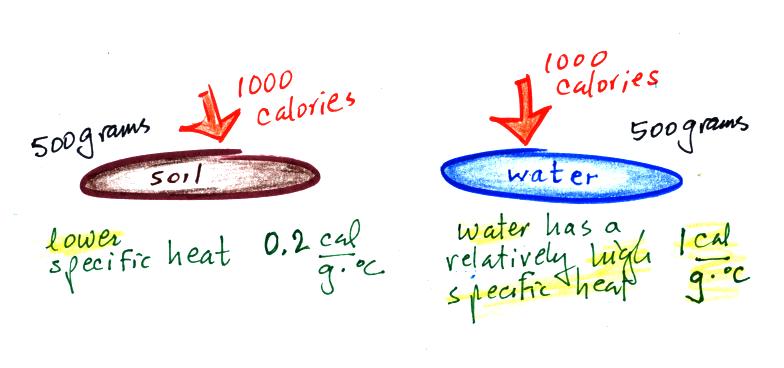 1000
calories
500grams
soil
lower
specific heat 0.2 cal
g·°C
1000
calories
500grams
water
water has a
relatively high 1 cal
specific heat g·°C